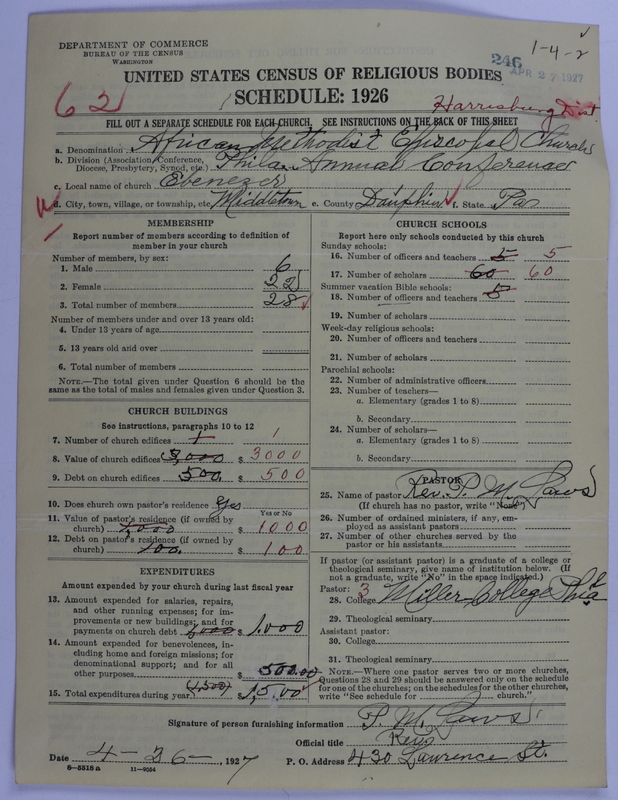 DEPARTMENT OF COMMERCE
BUREAU OF THE CENSUS
WASHINGTON
246
1-4-2
APR 27 1927
UNITED STATES CENSUS OF RELIGIOUS BODIES
SCHEDULE: 1926
62
Harrisburg Dist
FILL OUT A SEPARATE SCHEDULE FOR EACH CHURCH. SEE INSTRUCTIONS ON THE BACK OF THIS SHEET
a. Denomination African Methodist Episcopal Church
b. Division (Association, Conference, Diocese, Presbytery, Synod, etc.) Phila. Annual Conference
c. Local name of church Ebenezer
d. City, town, village, or township, etc. Middletown e. County Dauphin f. State Pa
MEMBERSHIP
Report number of members according to definition of
member in your church
Number of members, by sex:
1. Male 6
2. Female 22
3. Total number of members 28
Number of members under and over 13 years old:
4. Under 13 years of age
5. 13 years old and over
6. Total number of members
NOTE.—The total given under Question 6 should be the
same as the total of males and females given under Question 3.
CHURCH BUILDINGS
See instructions, paragraphs 10 to 12
7. Number of church edifices 1 1
8. Value of church edifices 3,000 $ 3000
9. Debt on church edifices 500. $ 500
10. Does church own pastor's residence Yes
Yes or No
11. Value of pastor's residence (if owned by
church) 1000 $ 1000
12. Debt on pastor's residence (if owned by
church) 100. $ 100
EXPENDITURES
Amount expended by your church during last fiscal year
13. Amount expended for salaries, repairs,
and other running expenses; for im-
provements or new buildings; and for
payments on church debt 1,000 $ 1,000
14. Amount expended for benevolences, in-
cluding home and foreign missions; for
denominational support; and for all
other purposes $ 500.00
15. Total expenditures during year (1,500) $ 1,500
CHURCH SCHOOLS
Report here only schools conducted by this church
Sunday schools:
16. Number of officers and teachers 5 5
17. Number of scholars 60 60
Summer vacation Bible schools:
18. Number of officers and teachers 5
19. Number of scholars
Week-day religious schools:
20. Number of officers and teachers
21. Number of scholars
Parochial schools:
22. Number of administrative officers
23. Number of teachers—
a. Elementary (grades 1 to 8)
b. Secondary
24. Number of scholars—
a. Elementary (grades 1 to 8)
b. Secondary
PASTOR
25. Name of pastor Rev. P. M. Laws
(If church has no pastor, write "None")
26. Number of ordained ministers, if any, em-
ployed as assistant pastors
27. Number of other churches served by the
pastor or his assistants
If pastor (or assistant pastor) is a graduate of a college or
theological seminary, give name of institution below. (If
not a graduate, write "No" in the space indicated.)
Pastor: 3
28. College Miller College Phila
29. Theological seminary
Assistant pastor:
30. College
31. Theological seminary
NOTE.—Where one pastor serves two or more churches,
Questions 28 and 29 should be answered only on the schedule
for one of the churches; on the schedules for the other churches,
write "See schedule for church."
Signature of person furnishing information P. M. Laws
Official title Rev
Date 4-26-, 1927 P. O. Address 430 Lawrence St.
8-5518 a 11-9054